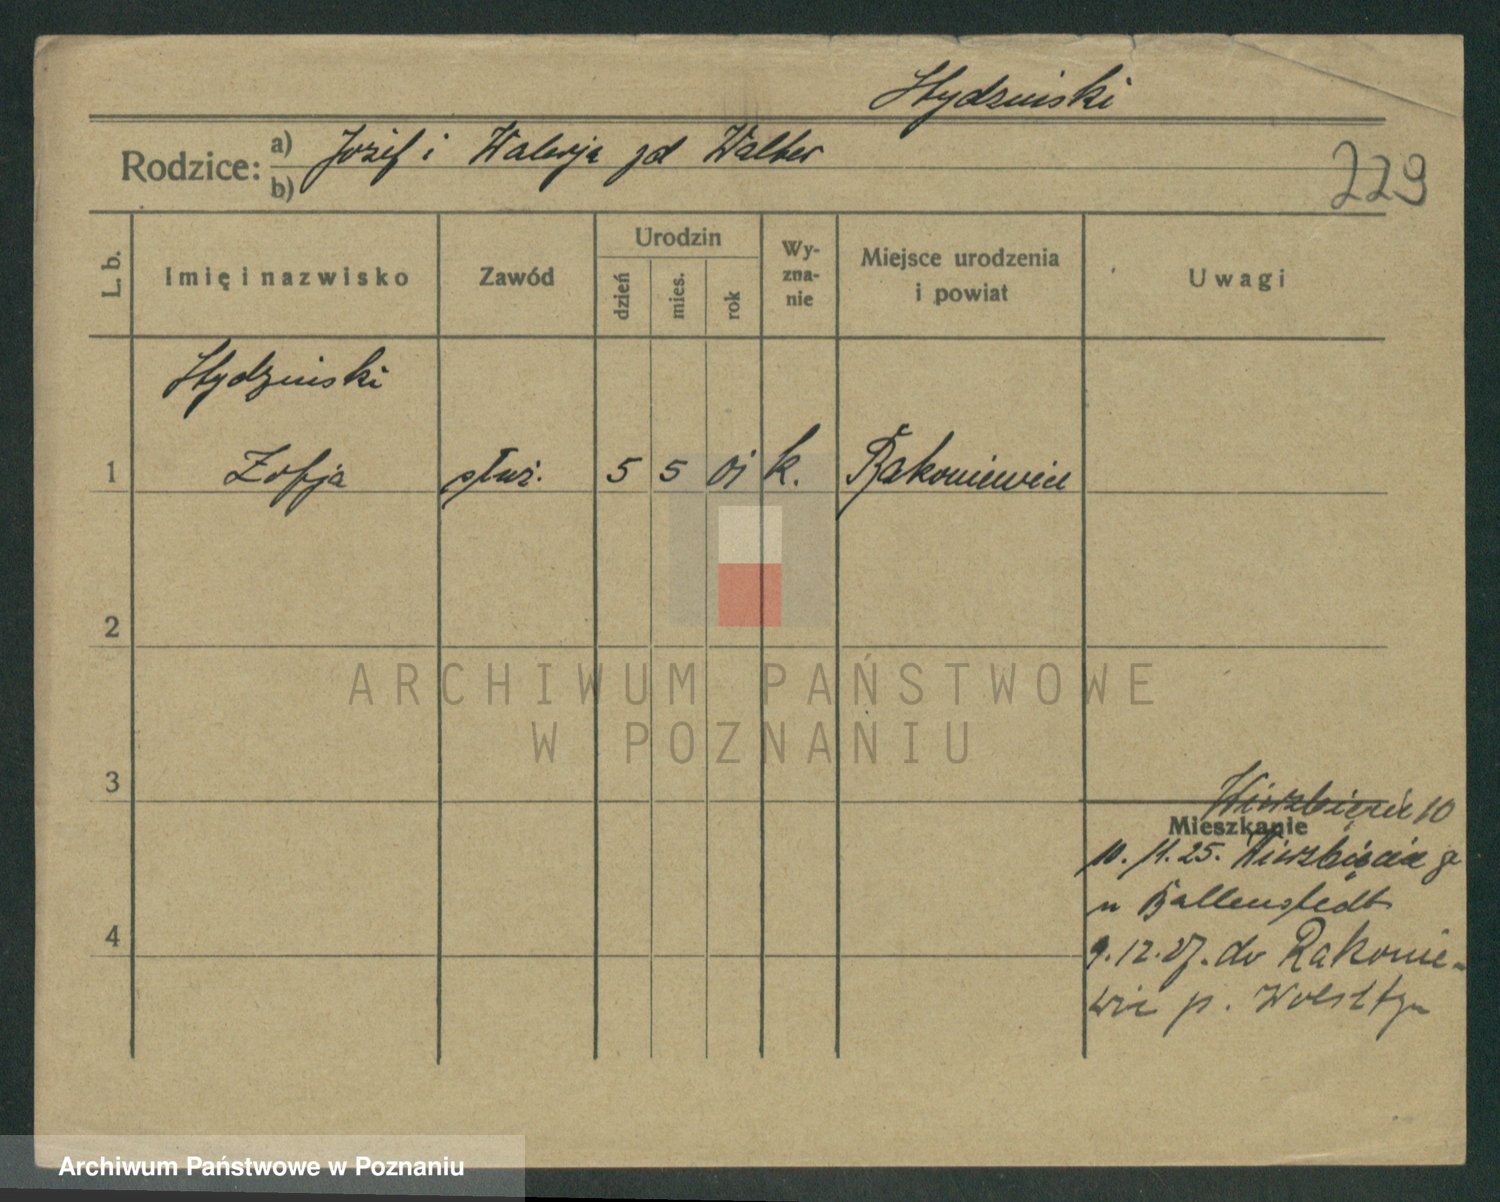 Hydzinski
Rodzice: a) Józef i Walerja zd Walter
b)
229
L. b.
Imię i nazwisko
Zawód
Urodzin
dzień
mies.
rok
Wy-
zna-
nie
Miejsce urodzenia
i powiat
Uwagi
Hydzinski
1 Zofja służ. 5 5 01 k. Rakoniewice
2
3
4
Wierzbięcie 10
Mieszkanie
10. 11. 25. Wierzbięcie
u Ballenstedt
9. 12. 27. do Rakonie-
wic p. Wolsztyn
ARCHIWUM PAŃSTWOWE
W POZNANIU
Archiwum Państwowe w Poznaniu